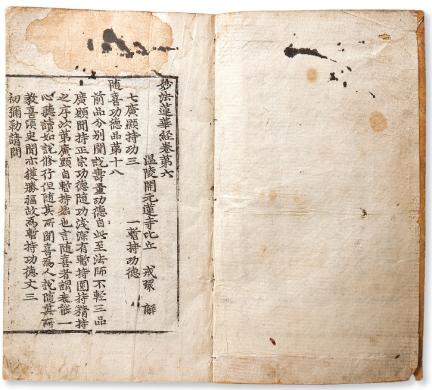 妙法蓮華經卷第六
温陵開元蓮寺比丘 戒環 解
七廣顯持功三 一暫持功德
隨喜功德品第十八
前品分別聞說壽量功德自此至法師不輕三品
廣顯聞持正宗功德隨功淺深有暫持圓持精持
之序次第廣顯自暫持始也言隨喜者謂未能一
心聽讀如說修行但隨其所聞喜爲人說隨其所
教喜須臾聞亦獲勝福故爲暫持功德文三
初彌勒請問